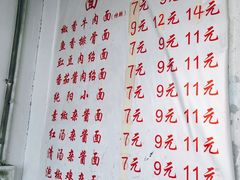 面
椒香牛肉面 7元 12元 14元
鱼香排骨面 9元 9元 11元
豇豆肉绍面 7元 9元 11元
番茄酱肉绍面 7元 9元 11元
炖阳小面 7元 9元 11元
素椒杂酱面 7元 9元 11元
红汤杂酱面 7元 9元 11元
清汤杂酱面 7元 9元 11元
泡椒杂酱面 7元 9元 11元